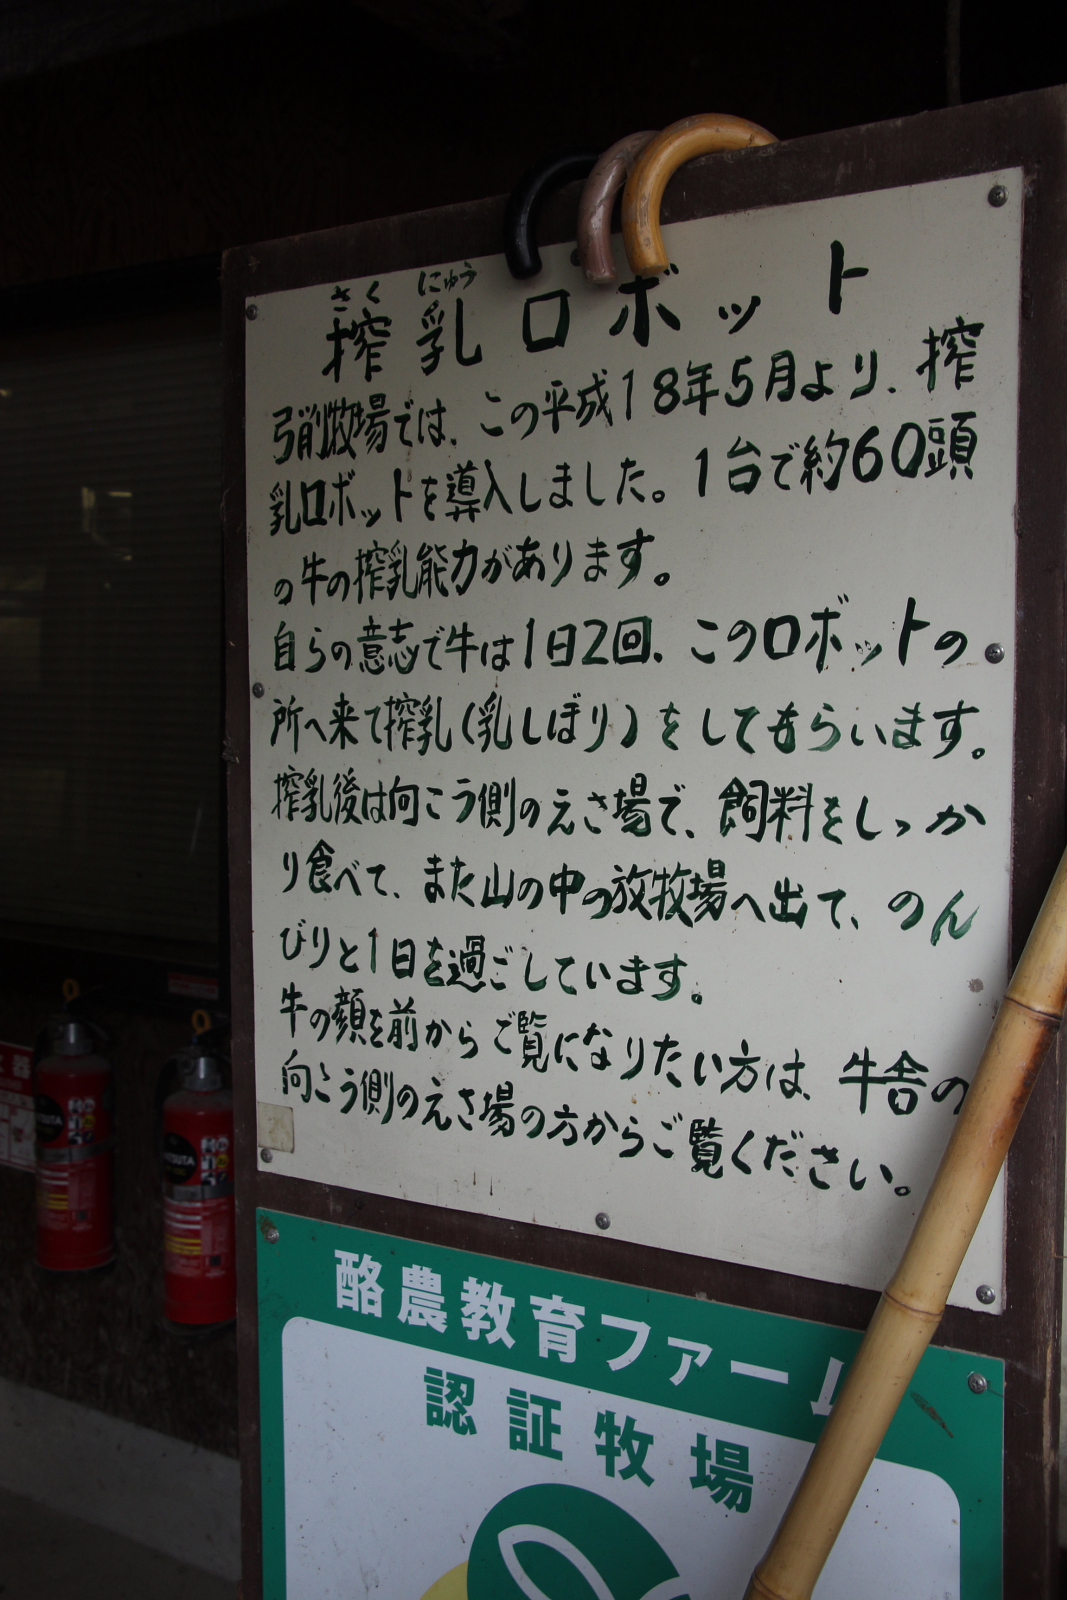 さく にゅう
搾乳ロボット
弓削牧場では、この平成18年5月より、搾
乳ロボットを導入しました。1台で約60頭
の牛の搾乳能力があります。
自らの意志で牛は1日2回、このロボットの
所へ来て搾乳(乳しぼり)をしてもらいます。
搾乳後は向こう側のえさ場で、飼料をしっか
り食べて、また山の中の放牧場へ出て、のん
びりと1日を過ごしています。
牛の顔を前からご覧になりたい方は、牛舎の
向こう側のえさ場の方からご覧ください。
酪農教育ファーム
認証牧場